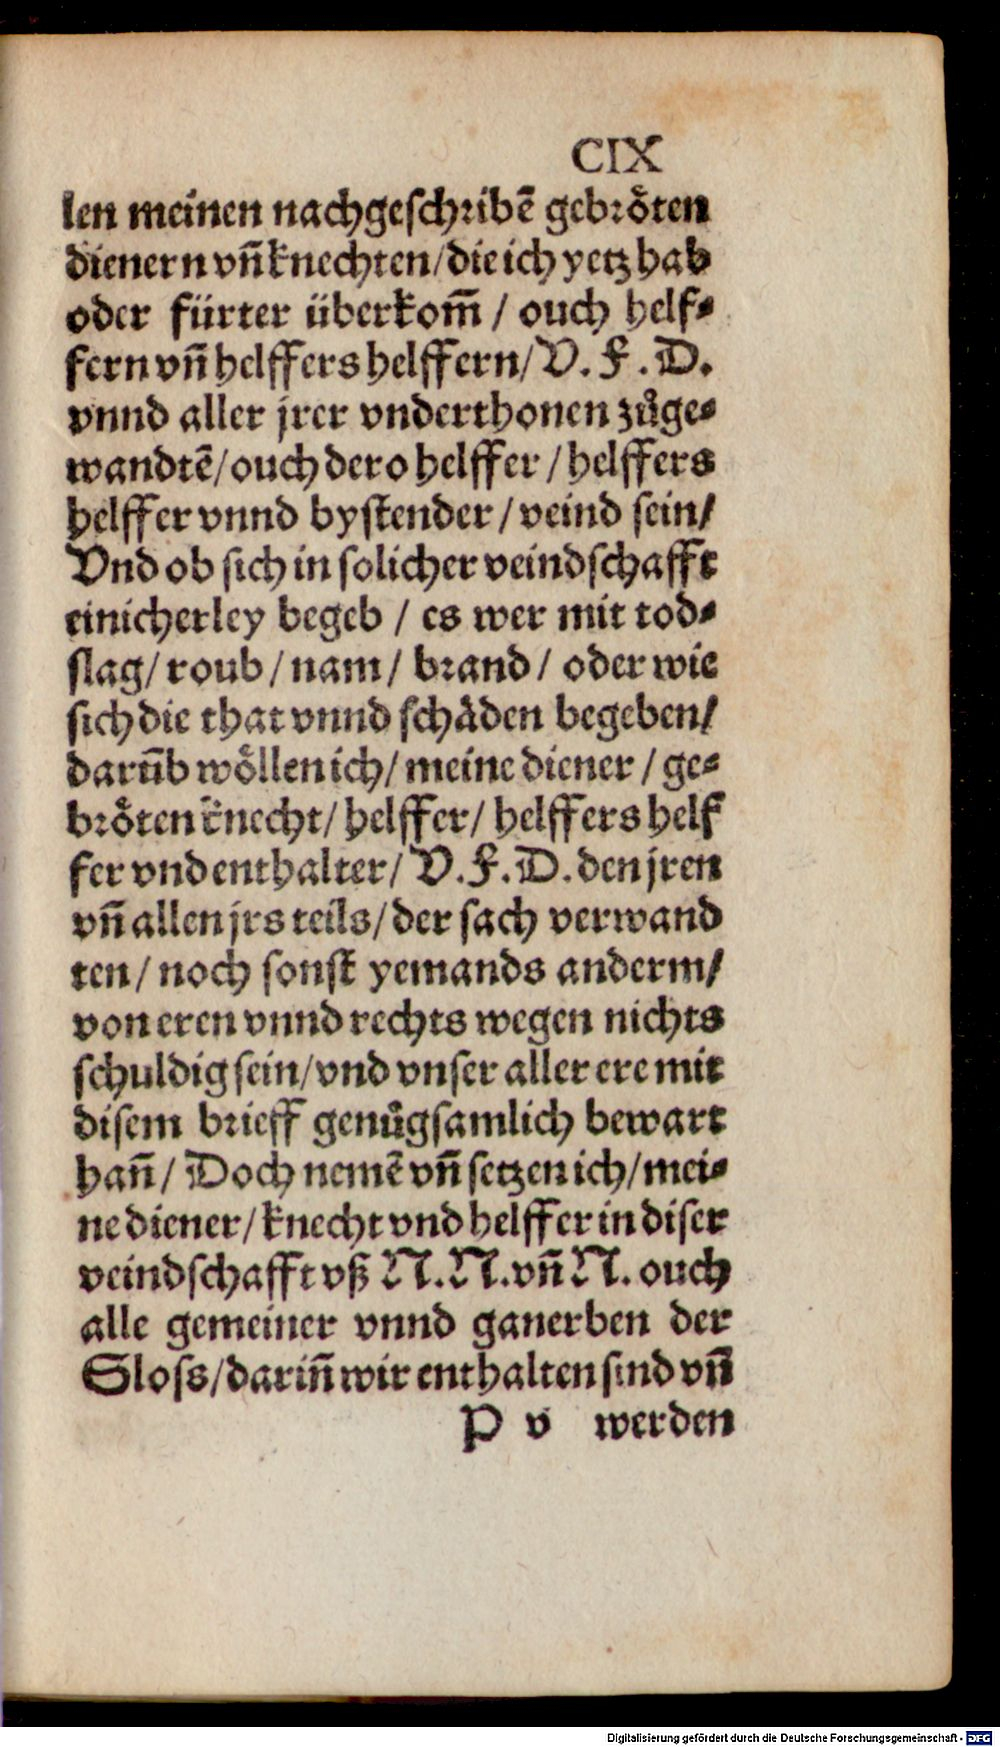 CIX
len meinen nachgeschribē gebrôten
dienern vñ knechten/die ich yetz hab
oder fürter überkom̄ / ouch helf⸗
fern vñ helffers helffern/ V. F. D.
vnnd aller jrer vnderthonen zůge⸗
wandtē/ ouch dero helffer / helffers
helffer vnnd bystender / veind sein/
Vnd ob sich in solicher veindschafft
einicherley begeb / es wer mit tod⸗
slag/ roub / nam / brand / oder wie
sich die that vnnd schåden begeben/
darūb wôllen ich/ meine diener / ge⸗
brôten knecht/ helffer/ helffers helf
fer vnd enthalter/ V. F. D. den jren
vñ allen jrs teils/ der sach verwand
ten / noch sonst yemands anderm/
von eren vnnd rechts wegen nichts
schuldig sein/ vnd vnser aller ere mit
disem brieff genůgsamlich bewart
hañ/ Doch nemē vñ setzen ich/ mei⸗
ne diener/ knecht vnd helffer in diser
veindschafft vß N. N. vñ N. ouch
alle gemeiner vnnd ganerben der
Sloss/ dariñ wir enthalten sind vñ
P v werden
Digitalisierung gefördert durch die Deutsche Forschungsgemeinschaft - DFG